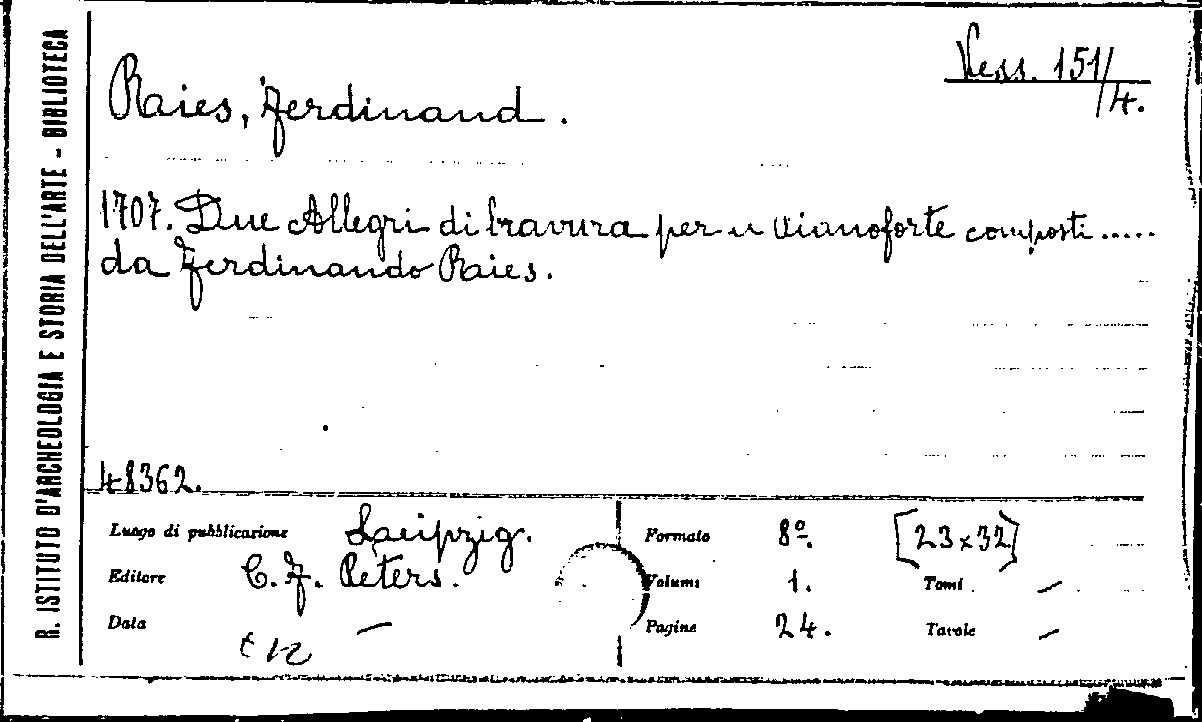 R. ISTITUTO D'ARCHEOLOGIA E STORIA DELL'ARTE - BIBLIOTECA
Vess. 151/4.
Raies, Ferdinand.
1707. Due Allegri di bravura per il Pianoforte composti.....
da Ferdinando Raies.
48362.
Luogo di pubblicazione Laeipzig.
Editore C. F. Peters.
Data —
Formato 8º. [23x32]
Volumi 1. Tomi —
Pagine 24. Tavole —